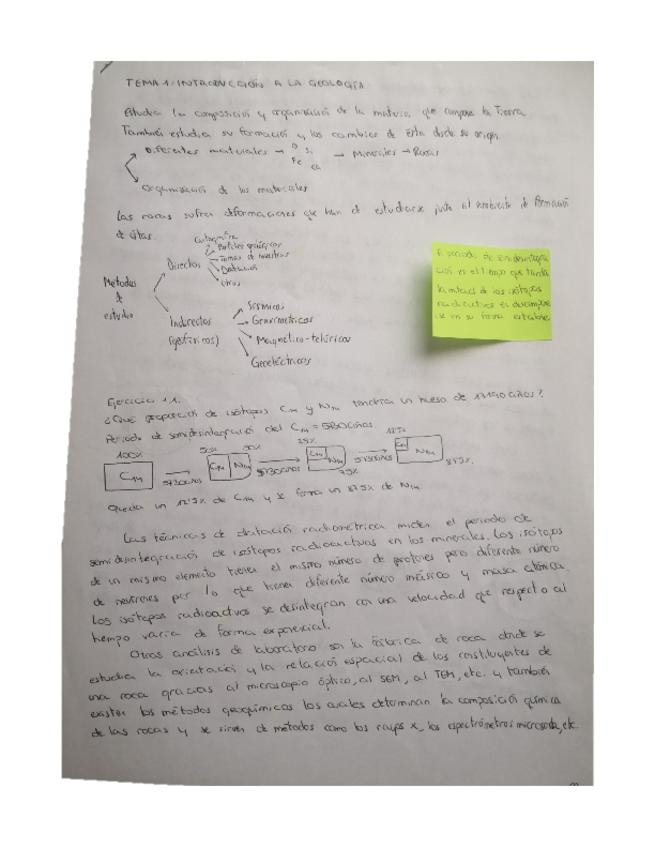 TEMA 1: INTRODUCCIÓN A LA GEOLOGÍA
Estudia la composición y organización de la materia que compone la Tierra.
También estudia su formación y los cambios de ésta desde su origen.
Diferentes materiales → O Si Fe Ca → Minerales → Rocas
Organización de los materiales
Las rocas sufren deformaciones que han de estudiarse junto al ambiente de formación
de éstas.
Métodos de estudio
Directos
Cartografía
Perfiles geológicos
Tomas de muestras
Datación
Otros
Indirectos (geofísicos)
Sísmicos
Gravimétricos
Magnético-telúricos
Geoeléctricos
El periodo de semidesintegra
ción es el tiempo que tarda
la mitad de los isótopos
radioactivos en descomponer
se en su forma estable
Ejercicio 1.1.
¿Qué proporción de isótopos C14 y N14 tendría un hueso de 17190 años?
Periodo de semidesintegración del C14 = 5730 años.
100% 50% 50% 25% 12'5%
C14 5730 años C14 N14 5730 años C14 N14 5730 años C14 N14
75% 87'5%
Queda un 12'5% de C14 y se forma un 87'5% de N14
Las técnicas de datación radiométrica miden el periodo de
semidesintegración de isótopos radioactivos en los minerales. Los isótopos
de un mismo elemento tienen el mismo número de protones pero diferente número
de neutrones por lo que tienen diferente número másico y masa atómica.
Los isótopos radioactivos se desintegran con una velocidad que respecto al
tiempo varía de forma exponencial.
Otros análisis de laboratorio son la fábrica de roca donde se
estudia la orientación y la relación espacial de los constituyentes de
una roca gracias al microscopio óptico, al SEM, al TEM, etc. y también
existen los métodos geoquímicos los cuales determinan la composición química
de las rocas y se sirven de métodos como los rayos x, los espectrómetros, microsonda, etc.